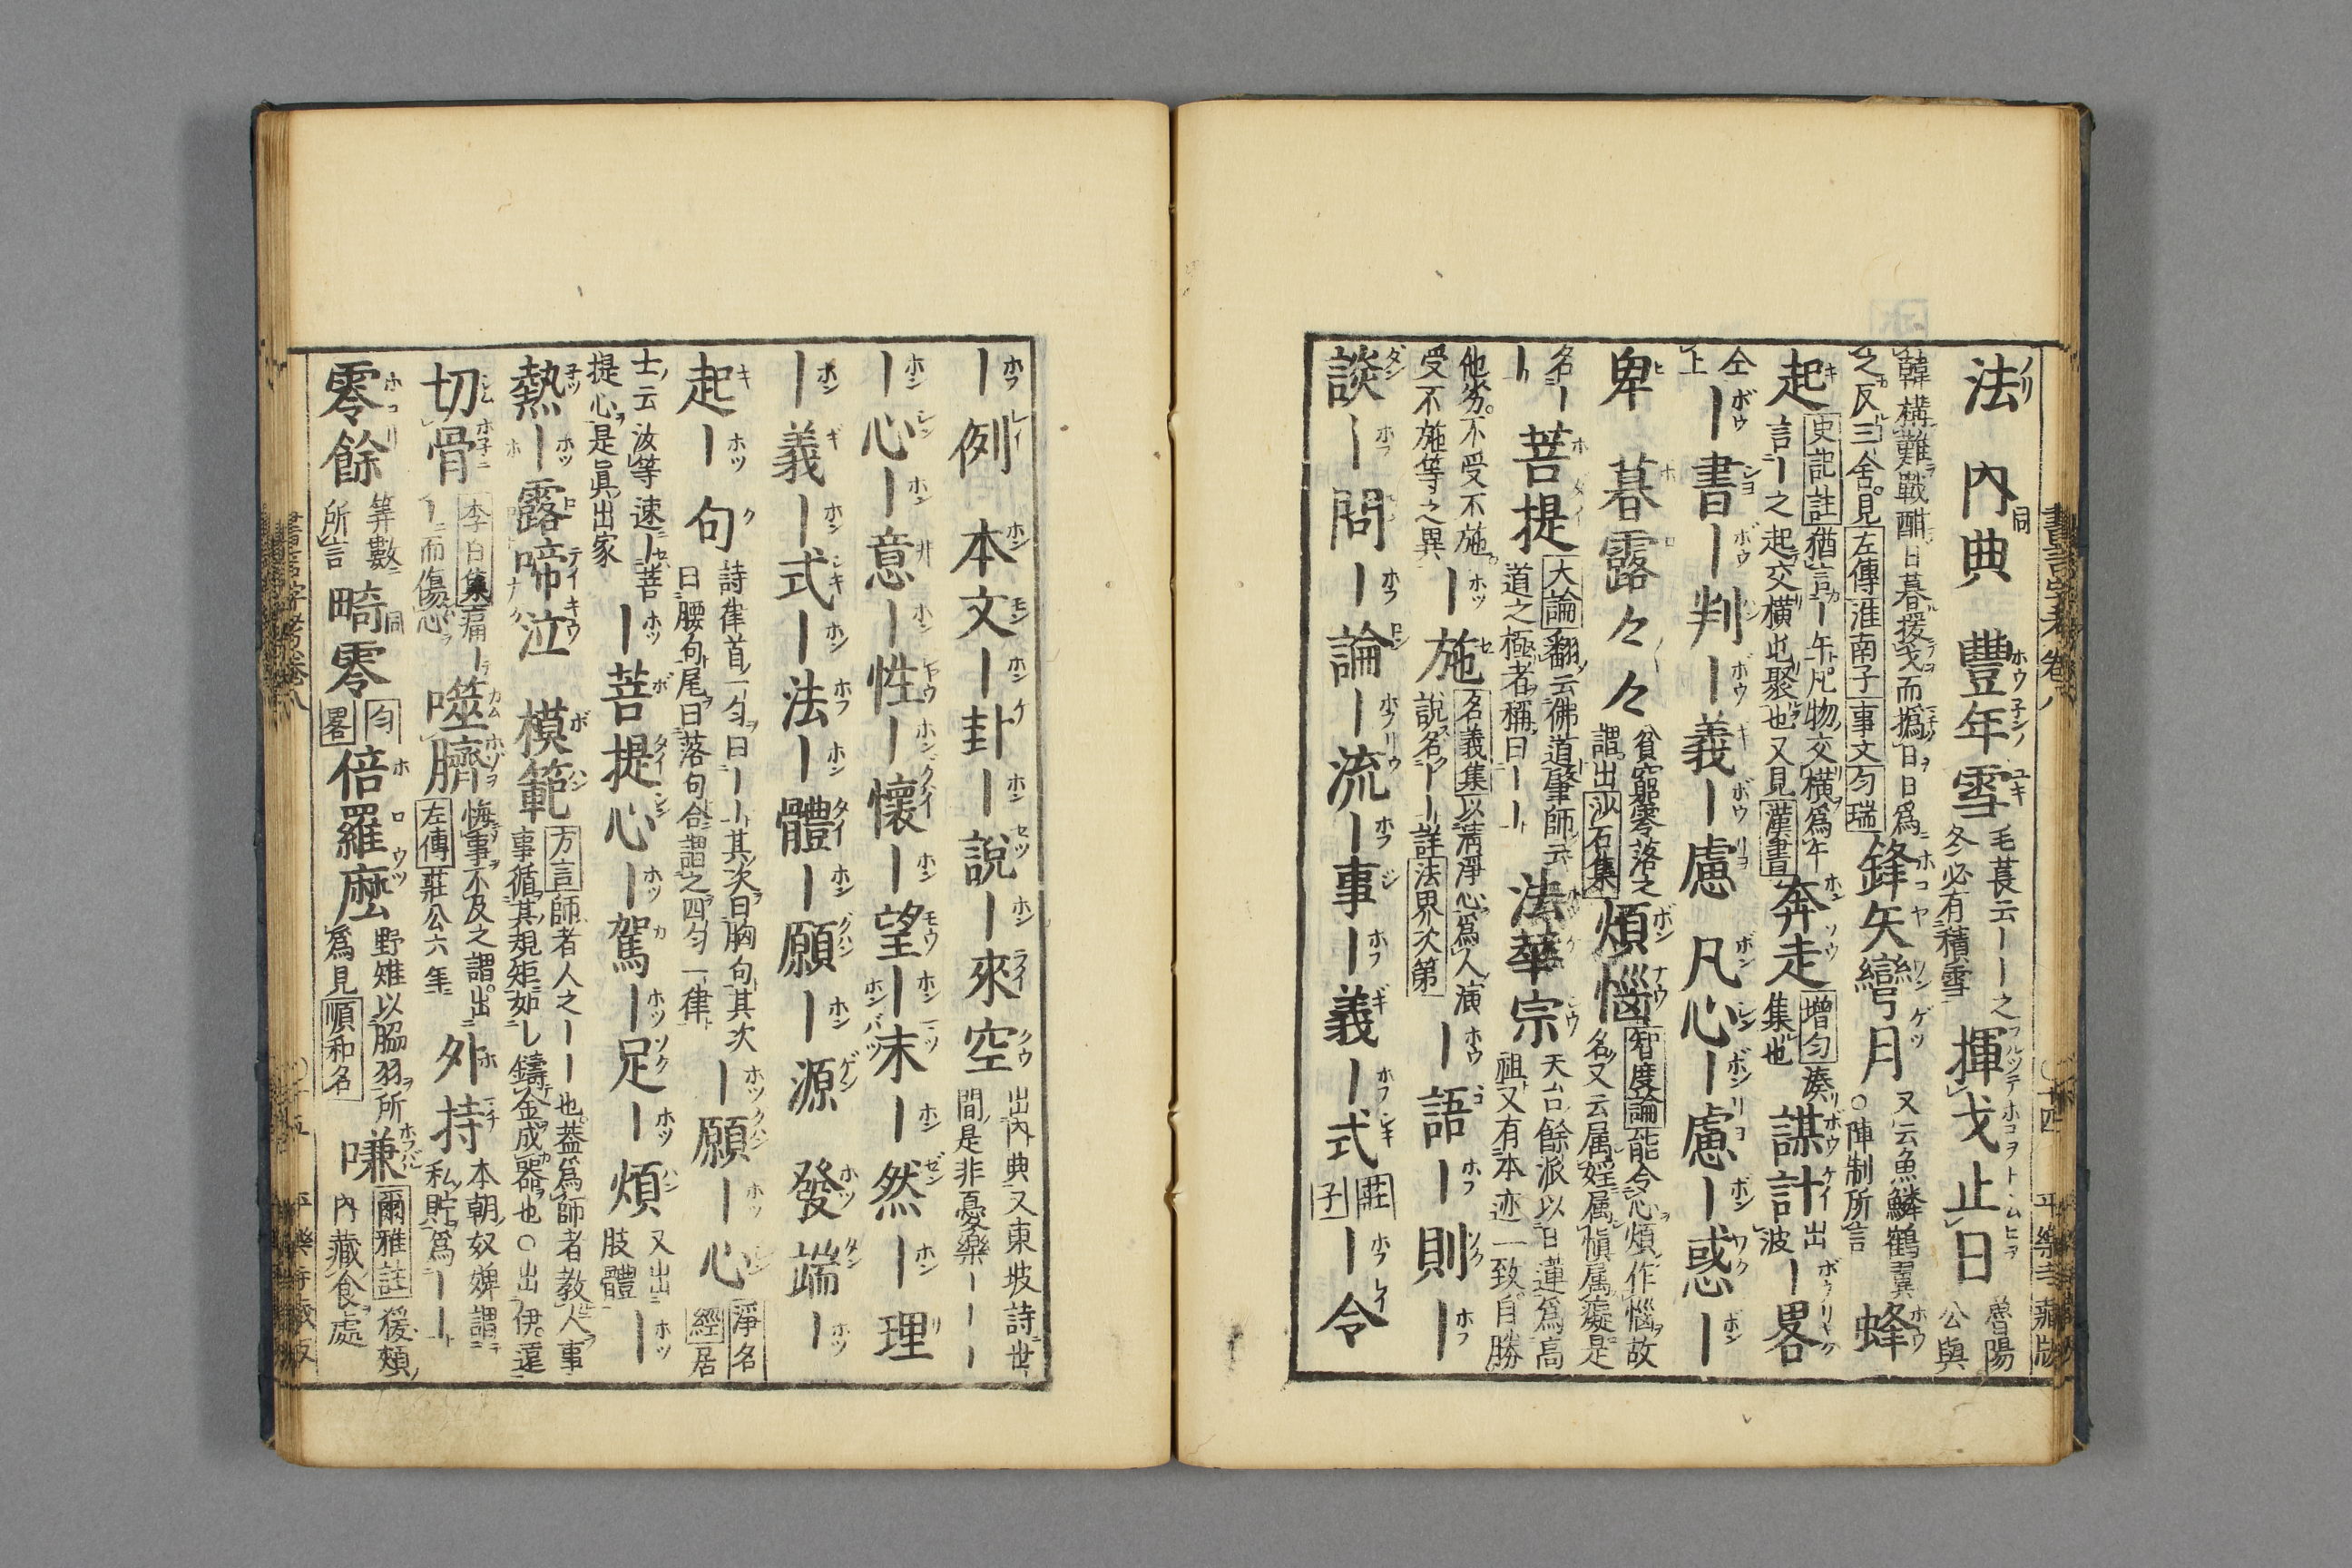 法 內典 豐年雪 毛萇云ーー之冬必有積雪 揮戈止日 魯陽公與
韓構難戰酣日暮援戈而撝日日爲之反三舍見左傳淮南子事文勻瑞 鋒矢彎月 又云魚鱗鶴翼○陣制所言 蜂
起 史記註猶言ー午凡物交橫爲午言ー之起交橫也聚也又見漢書 奔走 增勻湊集也 謀計 出 波ー畧
仝上 ー書ー判ー義ー慮 凡心ー慮ー惑ー
卑 暮露々々 貧窮零落之謂出沙石集 煩惱 智度論能令心煩作惱故名又云属婬属愼属癡是
名ーー 菩提 大論翻云佛道肇師云道之極者稱曰ーー 法華宗 天台餘派以日蓮爲高祖又有本迹一致自勝
他劣不受不施受不施等之異 ー施 名義集以淸淨心爲人演說名ーー詳法界次第 ー語ー則ー
談ー問ー論ー流ー事ー義ー式 莊子 ー令
ー例 本文ー卦ー說ー來空 出內典又東坡詩世間是非憂樂ーーー
ー心ー意ー性ー懷ー望ー末ー然ー理
ー義ー式ー法ー體ー願ー源 發端ー
起ー句 詩律首一勻曰ーー其次曰胸句其次曰腰句尾曰落句合謂之四勻一律 ー願ー心 淨名經居
士云汝等速ー菩提心是眞出家 ー菩提心ー駕ー足ー煩 又出肢體 ー
熱ー露啼泣 模範 方言師者人之ーー也蓋爲師者敎人事事循其規矩如ㇾ鑄金成器也○出伊遠
切骨 李白集痛ーーー而傷心 噬臍 悔事不及之謂出左傳莊公六年 外持 本朝奴婢謂私貯爲ーー
零餘 筭數所言 畸零 勻畧 倍羅麽 野雉以脇羽所爲見順和名 嗛 爾雅註猨頰內藏食處